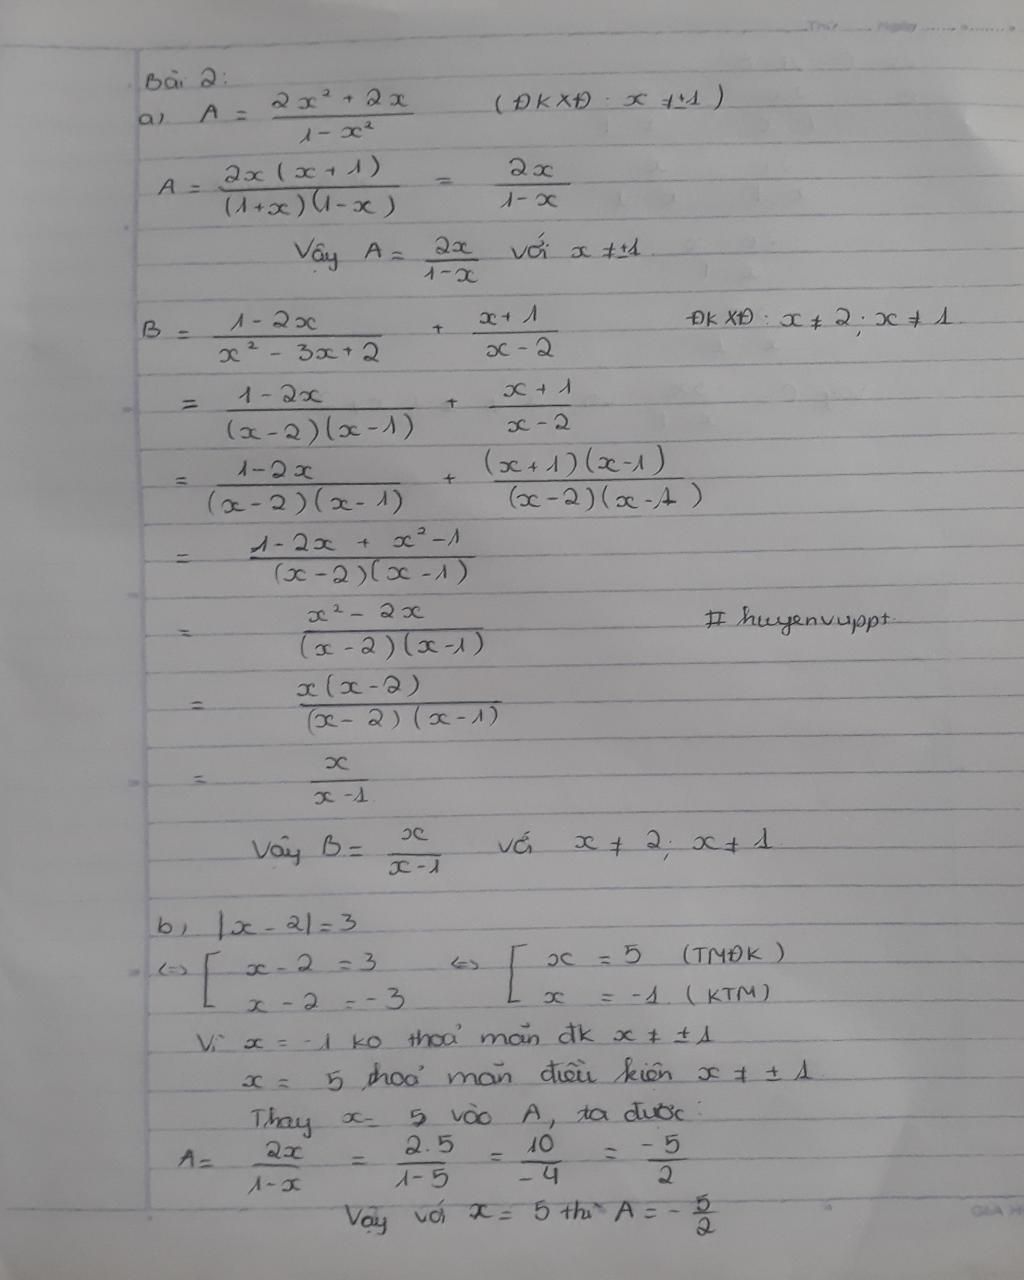 Thứ ...... Ngày ......
Bài 2:
a) A = (2x² + 2x)/(1 - x²) (ĐKXĐ: x ≠ ±1)
A = 2x(x + 1)/((1+x)(1-x)) = 2x/(1-x)
Vậy A = 2x/(1-x) với x ≠ ±1
B = (1 - 2x)/(x² - 3x + 2) + (x+1)/(x-2) ĐKXĐ: x ≠ 2; x ≠ 1
= (1-2x)/((x-2)(x-1)) + (x+1)/(x-2)
= (1-2x)/((x-2)(x-1)) + (x+1)(x-1)/((x-2)(x-1))
= (1-2x + x²-1)/((x-2)(x-1))
= (x² - 2x)/((x-2)(x-1)) # huyenvuppt
= x(x-2)/((x-2)(x-1))
= x/(x-1)
Vậy B = x/(x-1) với x ≠ 2; x ≠ 1
b, |x - 2| = 3
<=> [ x - 2 = 3 <=> [ x = 5 (TMĐK)
x - 2 = -3 x = -1 (KTM)
Vì x = -1 ko thoả mãn đk x ≠ ±1
x = 5 thoả mãn điều kiện x ≠ ±1
Thay x = 5 vào A, ta được:
A = 2x/(1-x) = 2.5/(1-5) = 10/-4 = -5/2
Vậy với x = 5 thì A = -5/2